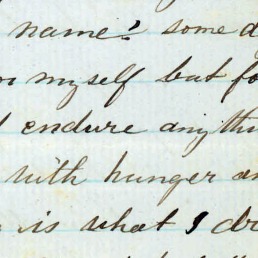 name? some d
myself but fo
endure anythin
with hunger an
is what I dr